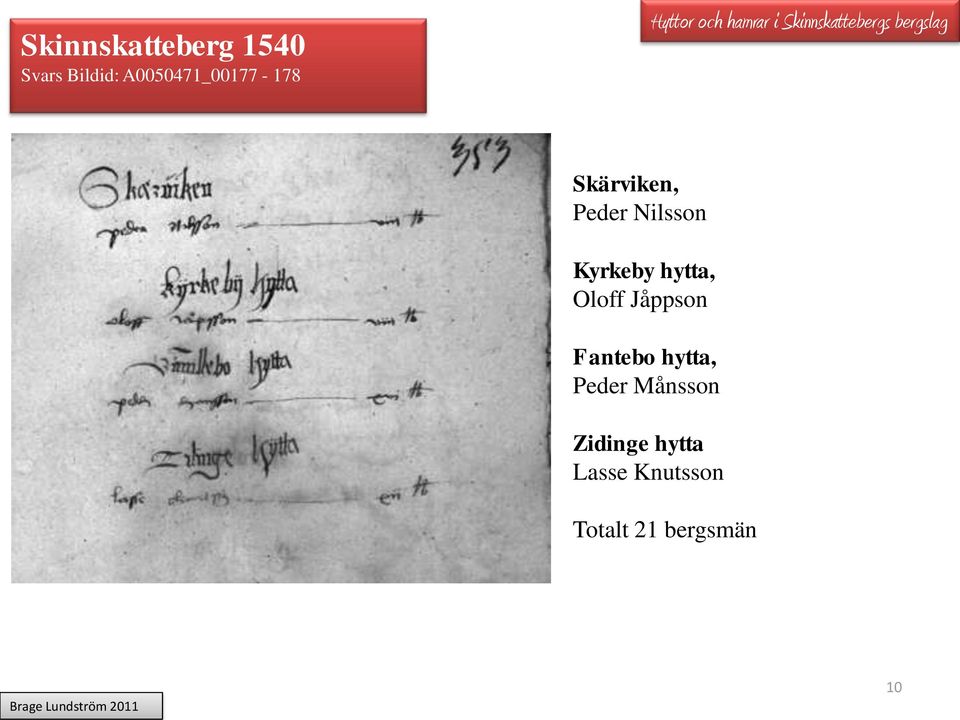 Skinnskatteberg 1540
Svars Bildid: A0050471_00177 - 178
Hyttor och hamrar i Skinnskattebergs bergslag
353
Skärviken
peder nilsson
kÿrke bÿ hÿtta
oloff
hÿtta
peder
Zidinge hÿtta
lasse
Skärviken,
Peder Nilsson
Kyrkeby hytta,
Oloff Jåppson
Fantebo hytta,
Peder Månsson
Zidinge hytta
Lasse Knutsson
Totalt 21 bergsmän
Brage Lundström 2011
10